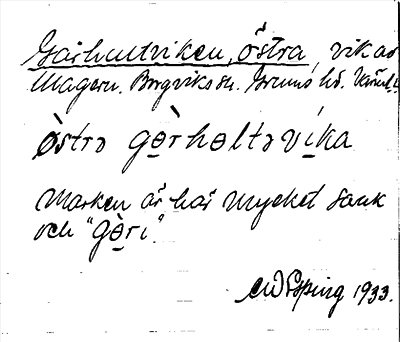 Gårholtviken, östra, vik av
Magern. Borgviks sn. Grums hd. Värml.
östrə gɵ̀rhɵltəvíka
Marken är här mycket sank
och "gɵ̀ri".
CW Esping 1933.